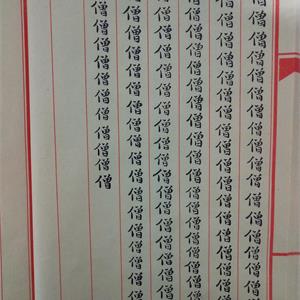 僧僧僧僧僧僧僧僧僧僧僧僧僧僧僧僧
僧僧僧僧僧僧僧僧僧僧僧僧僧僧僧僧
僧僧僧僧僧僧僧僧僧僧僧僧僧僧僧僧
僧僧僧僧僧僧僧僧僧僧僧僧僧僧僧僧
僧僧僧僧僧僧僧僧僧僧僧僧僧僧僧僧僧
僧僧僧僧僧僧僧僧僧僧僧